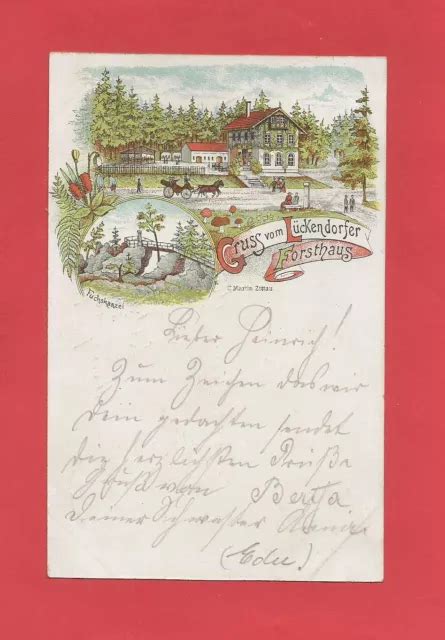 Gruss vom Lückendorfer
Forsthaus
Fuchskanzel
C. Maurin Zittau
Lieber Heinrich!
Zum Zeichen das wir
dein gedachten sendet
die herzlichsten Grüße
Gruß von Bertha
deiner Schwester
(Edu.)